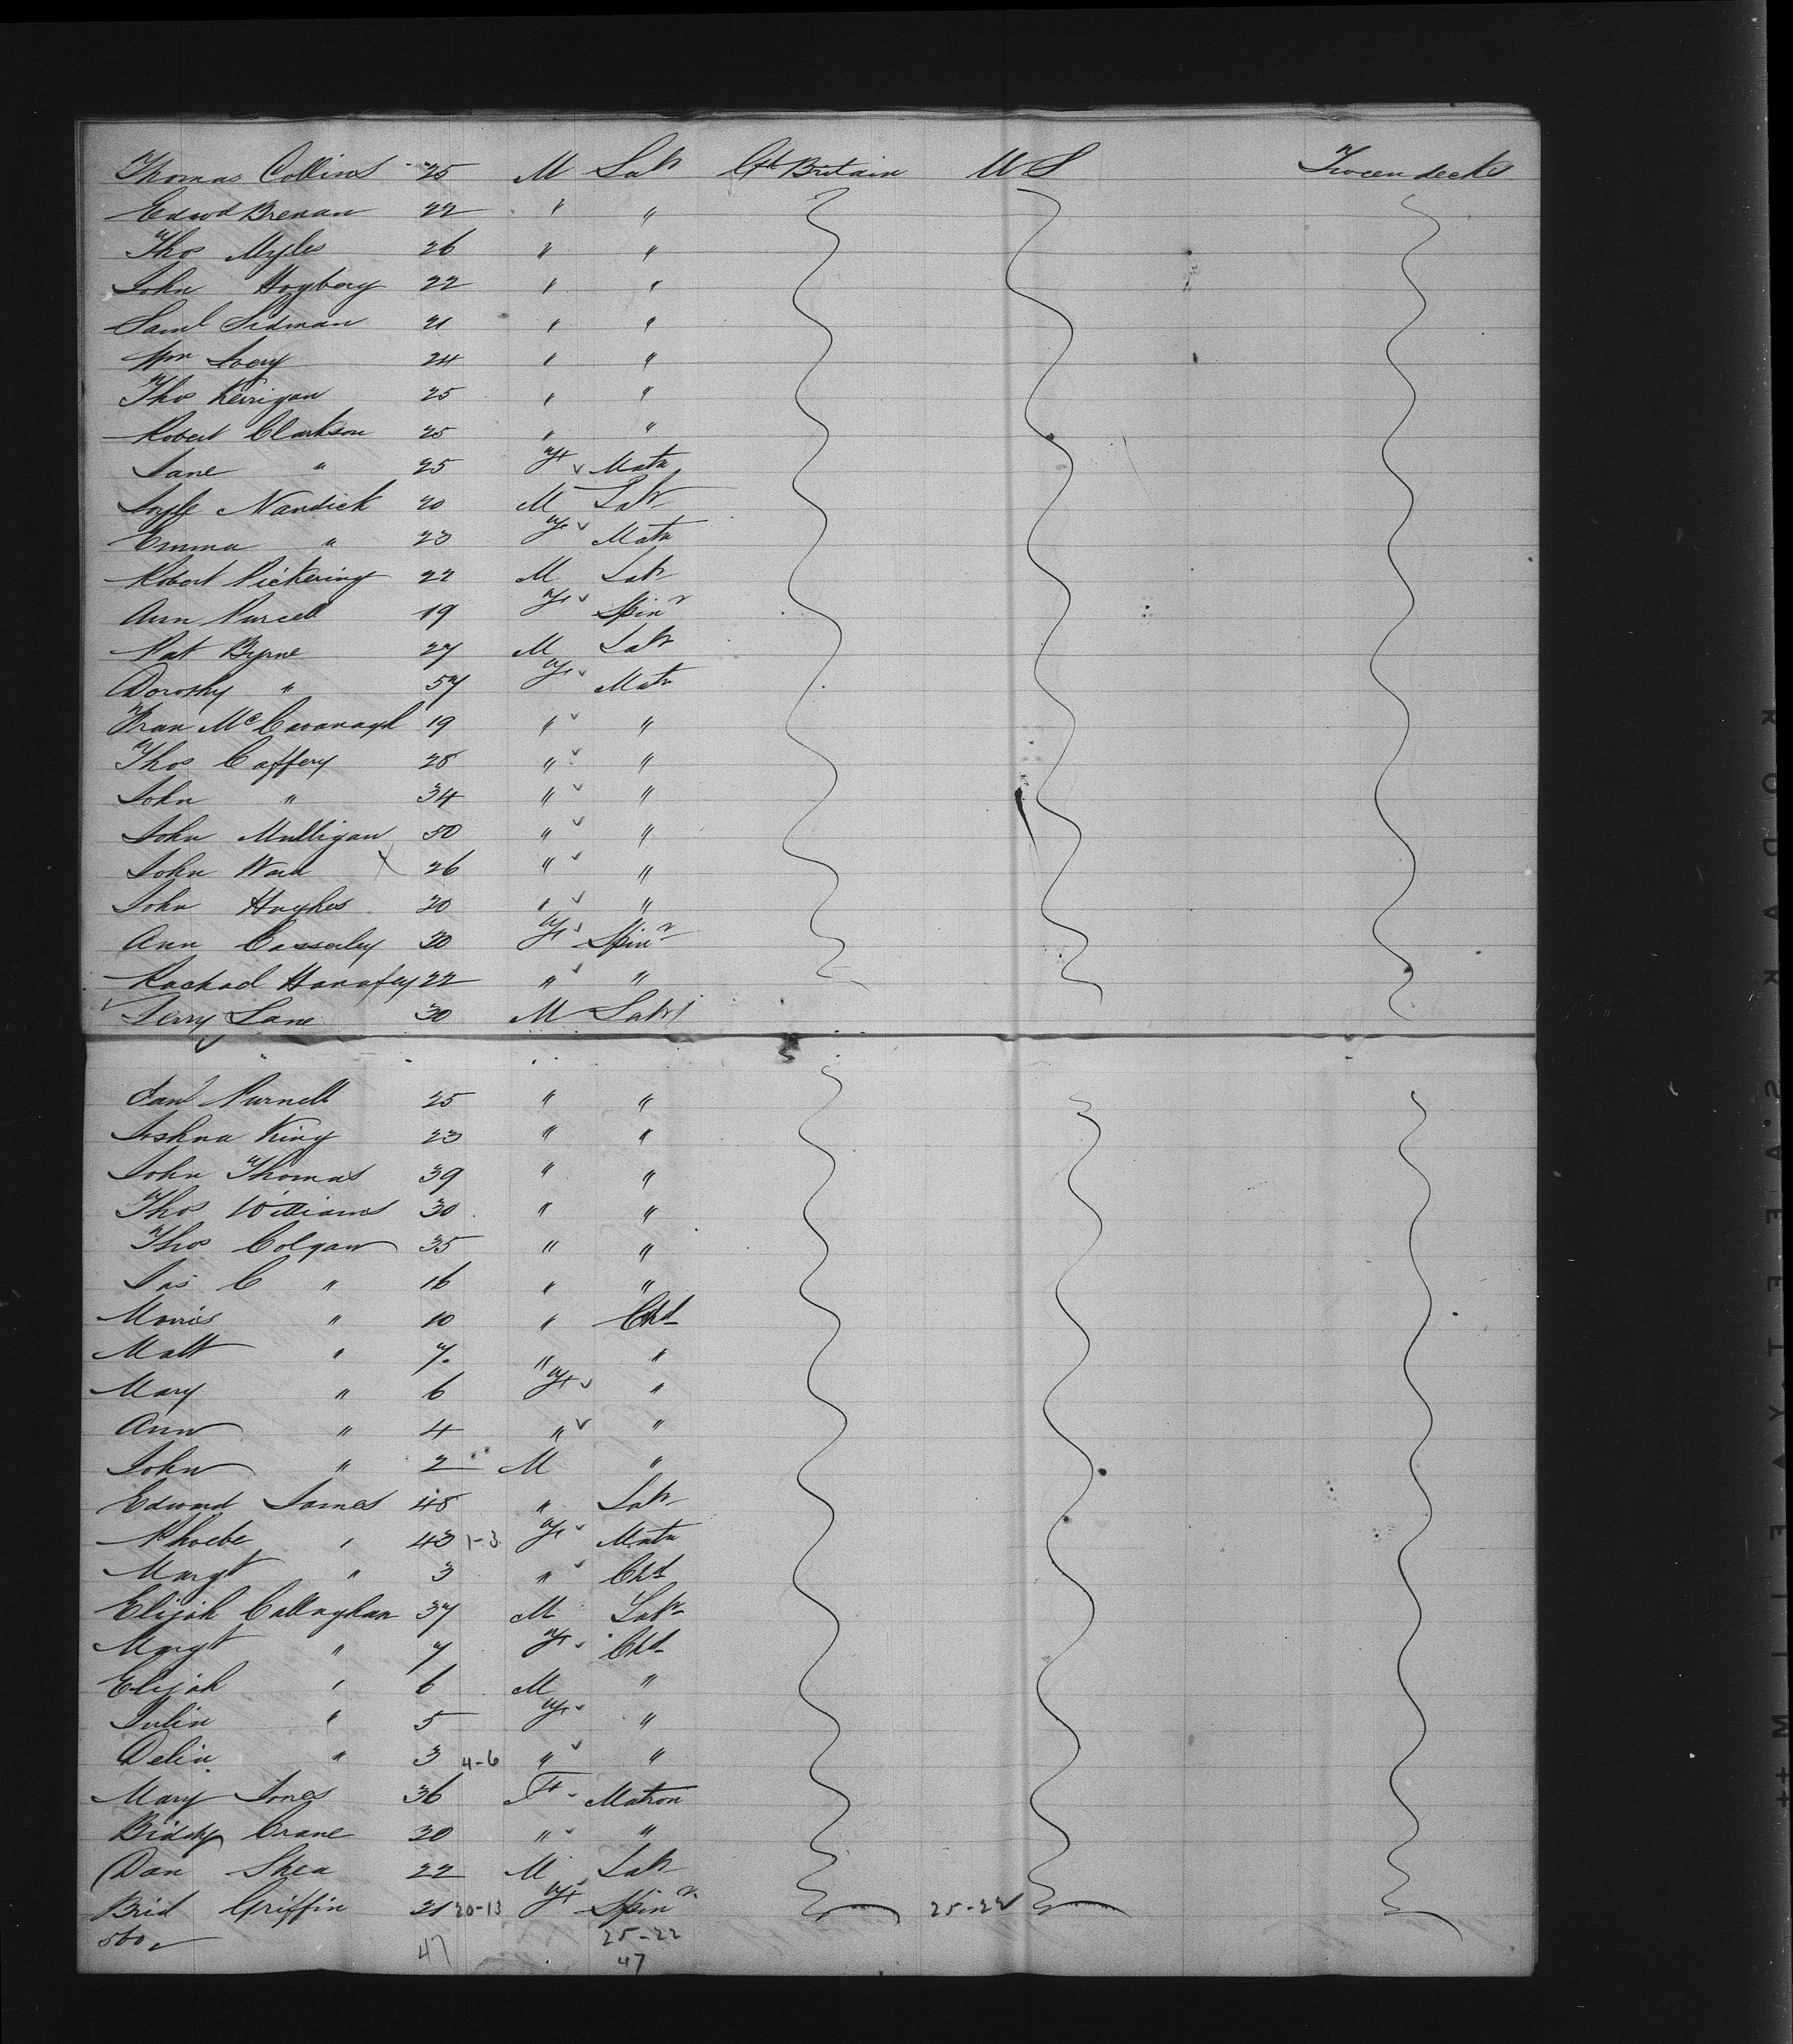 Thomas Collins 25 M Labr Gt Britain U S Tween decks
Edwd Brenan 22 " "
Thos Myles 26 " "
John Hogberg 22 " "
Saml Sidman 21 " "
Wm Ivery 24 " "
Thos Kerrigan 25 " "
Robert Clarkson 25 " "
Jane " 25 Ft Matn
Nandick 20 M Labr
Emma " 23 Ft Matn
Robert Pickering 22 M Labr
Ann Purcell 19 Ft Spinr
Pat Byrne 27 M Labr
Dorothy " 57 Ft Matn
Fran McCavanagh 19 " "
Thos Caffery 28 " "
John " 34 " "
John Mulligan 50 " "
John Ward 26 " "
John Hughes 30 " "
Ann Casserley 30 Ft Spinr
Rachael Hanafey 22 " "
Jerry Lane 30 M Labr
Purnell 25 " "
Joshua King 23 " "
John Thomas 39 " "
Thos Williams 30 " "
Thos Colgan 35 " "
Jas C " 16 " "
Morris " 10 " Chd
Matt " 7 " "
Mary " 6 Ft "
Ann " 4 " "
John " 2 M "
Edward James 48 " Labr
Phoebe " 43 1-3 Ft Matn
Margt " 3 " Chd
Elijah Callaghan 37 M Labr
Margt " 7 Ft Chd
Elijah " 6 M "
Julia " 5 Ft "
Delia " 3 4-6 " "
Mary Jones 36 Ft Matron
Biddy Crane 30 " "
Dan Shea 22 M Labr
Brid Griffin 21 20-13 Ft Spinr 25-22
560 47 25-22
47
KODAK·S·A·F·E·T·Y